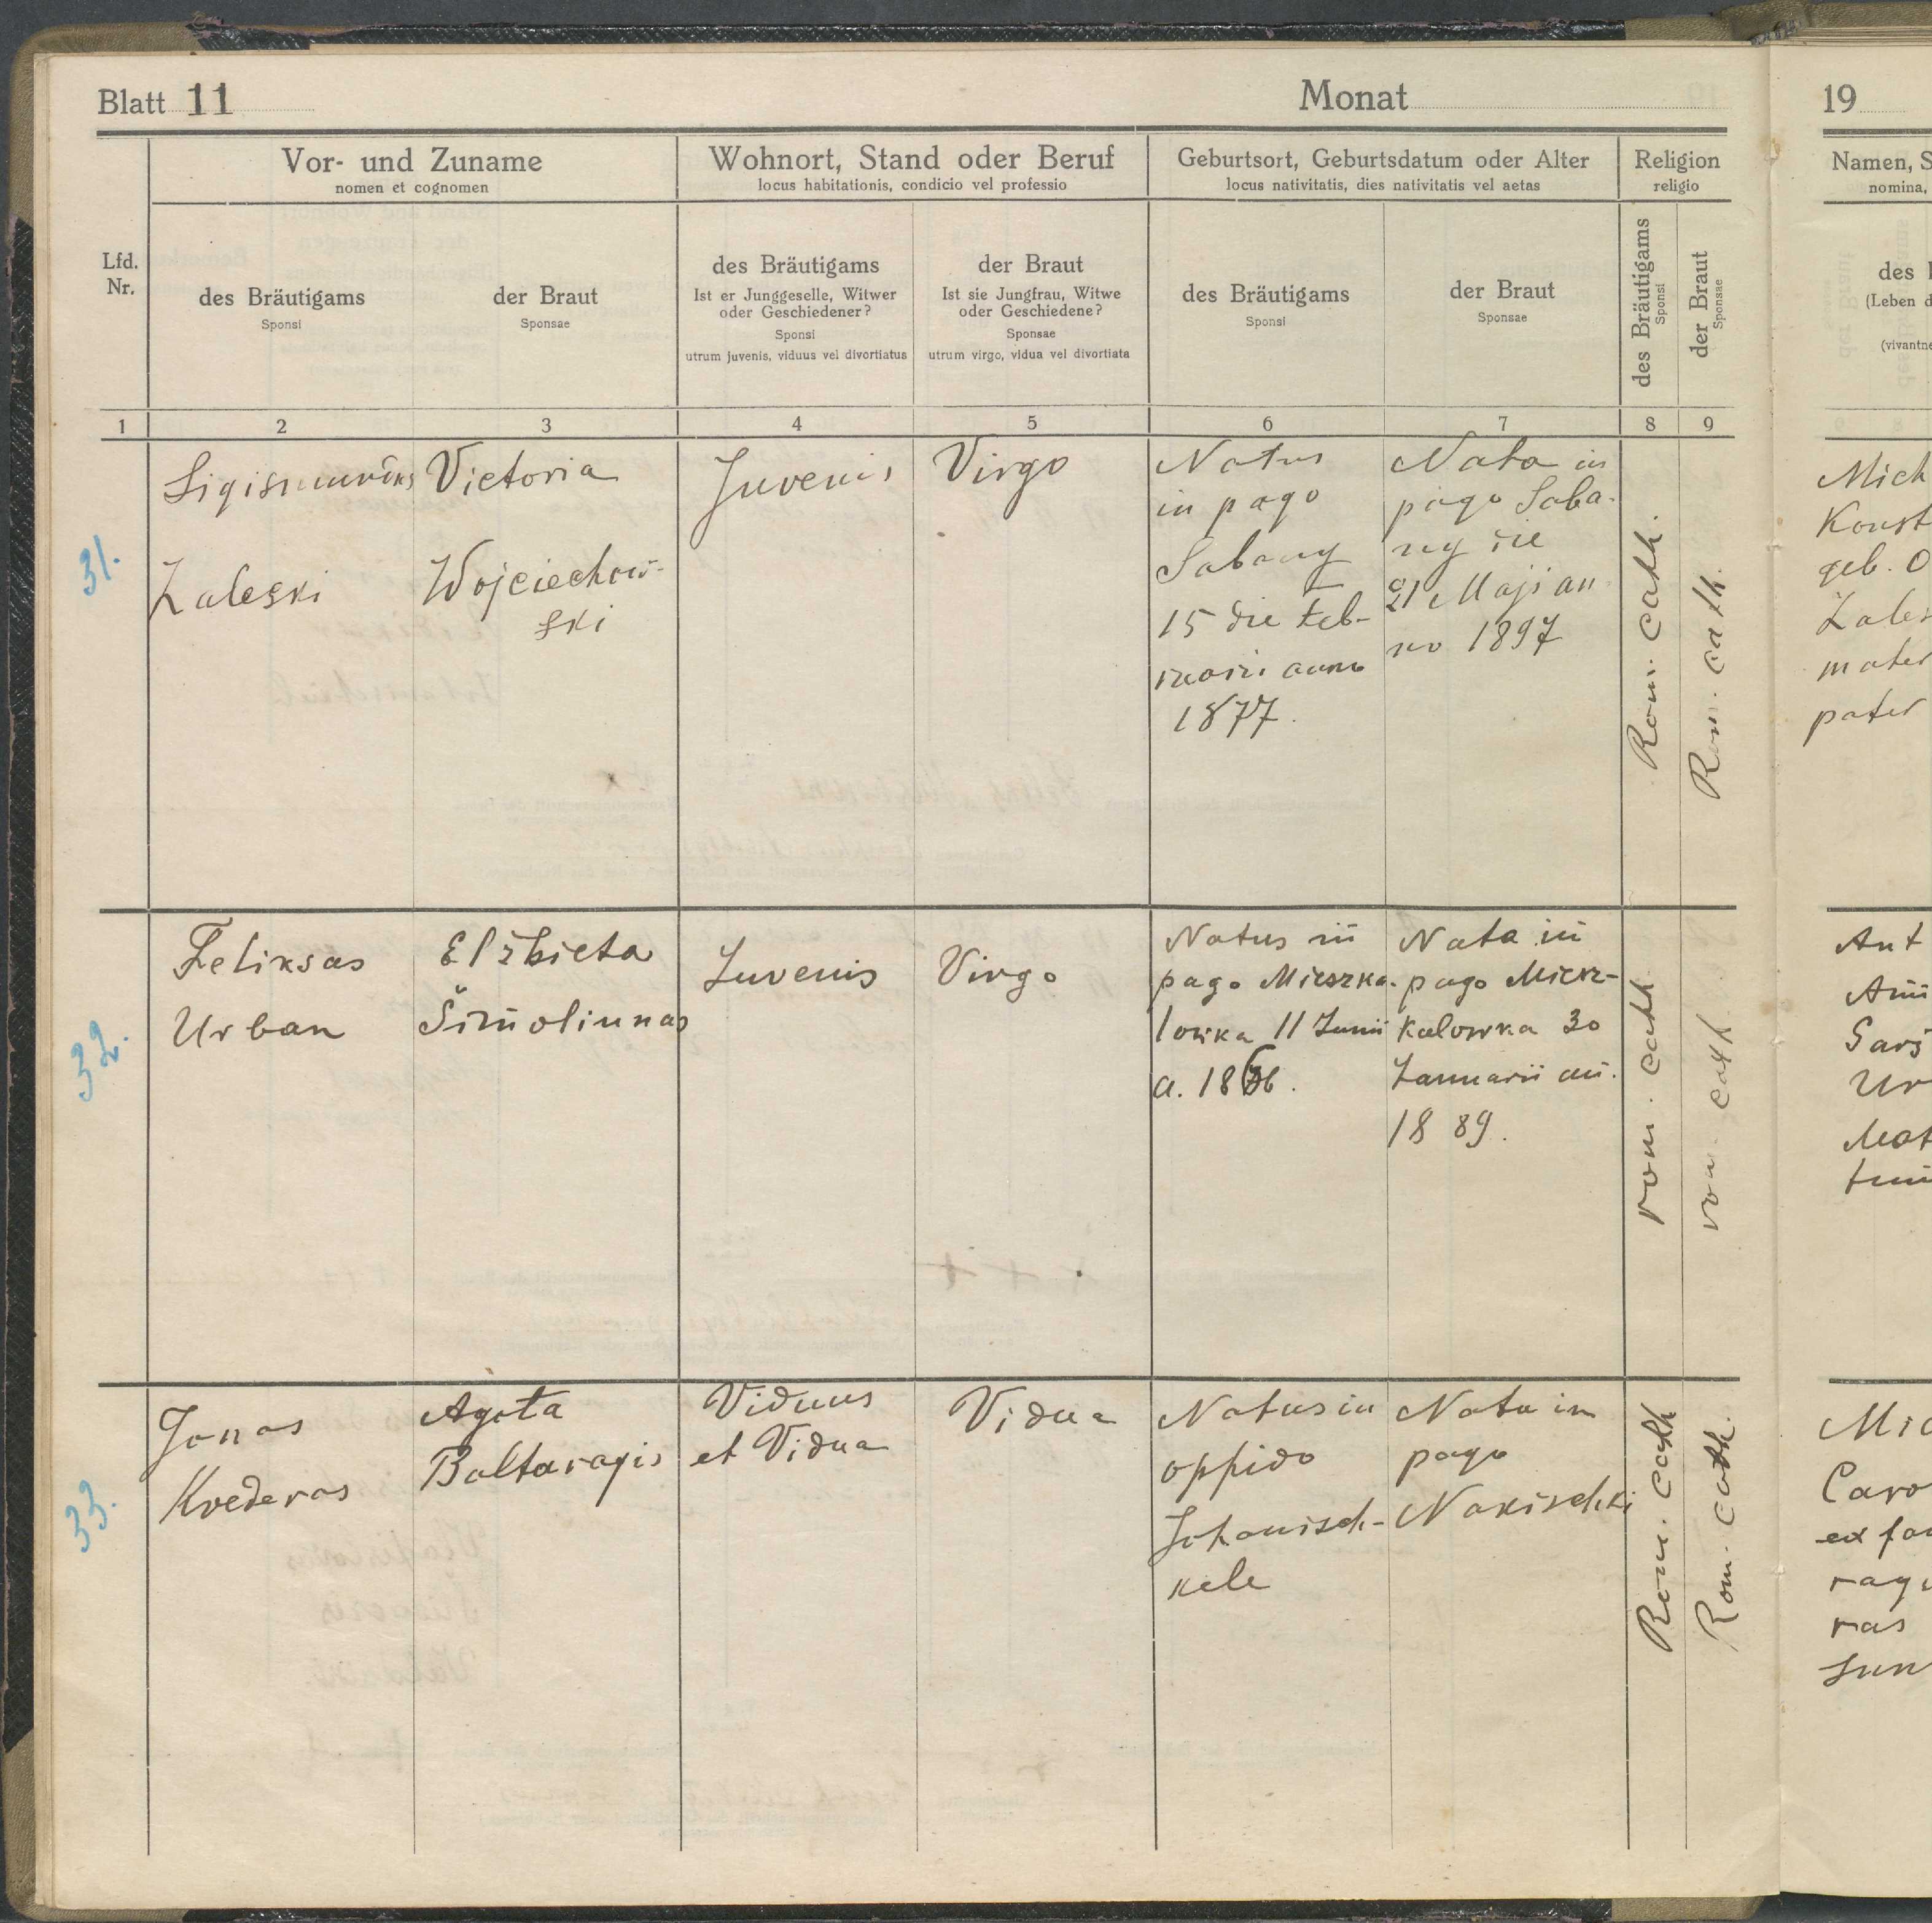 Blatt 11
Monat
19
Vor- und Zuname
nomen et cognomen
Wohnort, Stand oder Beruf
locus habitationis, condicio vel professio
Geburtsort, Geburtsdatum oder Alter
locus nativitatis, dies nativitatis vel aetas
Religion
religio
Namen, S
nomina,
Lfd.
Nr.
des Bräutigams
Sponsi
der Braut
Sponsae
des Bräutigams
Ist er Junggeselle, Witwer
oder Geschiedener?
Sponsi
utrum juvenis, viduus vel divortiatus
der Braut
Ist sie Jungfrau, Witwe
oder Geschiedene?
Sponsae
utrum virgo, vidua vel divortiata
des Bräutigams
Sponsi
der Braut
Sponsae
des Bräutigams
Sponsi
der Braut
Sponsae
des
(Leben d
(vivantne
1 2 3 4 5 6 7 8 9
31.
Zaleski
Victoria
Wojciechow-
ski
Juvenis
Virgo
Natus
in pago
Sabany
15 die Feb-
anno
1877.
Nata in
pago Saba-
ny die
21 Maji an
no 1897
Rom. cath.
Rom. cath.
Mich
Konst
geb. O
Zales
mater
pater
32.
Feliksas
Urban
Elžbieta
Šimoliunas
Juvenis
Virgo
Natus in
pago Mieszka-
lowka 11 Junii
a. 18
Nata in
pago Miesz-
kalowka 30
Januarii an.
1889.
rom. cath
rom. cath
Ant
Sars
Ur
Mat
33.
Jonas
Kvederas
Agota
Baltaragis
Viduus
et Vidua
Vidua
Natus in
oppido
Johanisch-
kele
Nata in
pago
Nakischki
Rom. cath
Rom. cath.
Mic
Caro
ex fa
ragi
ras
sun